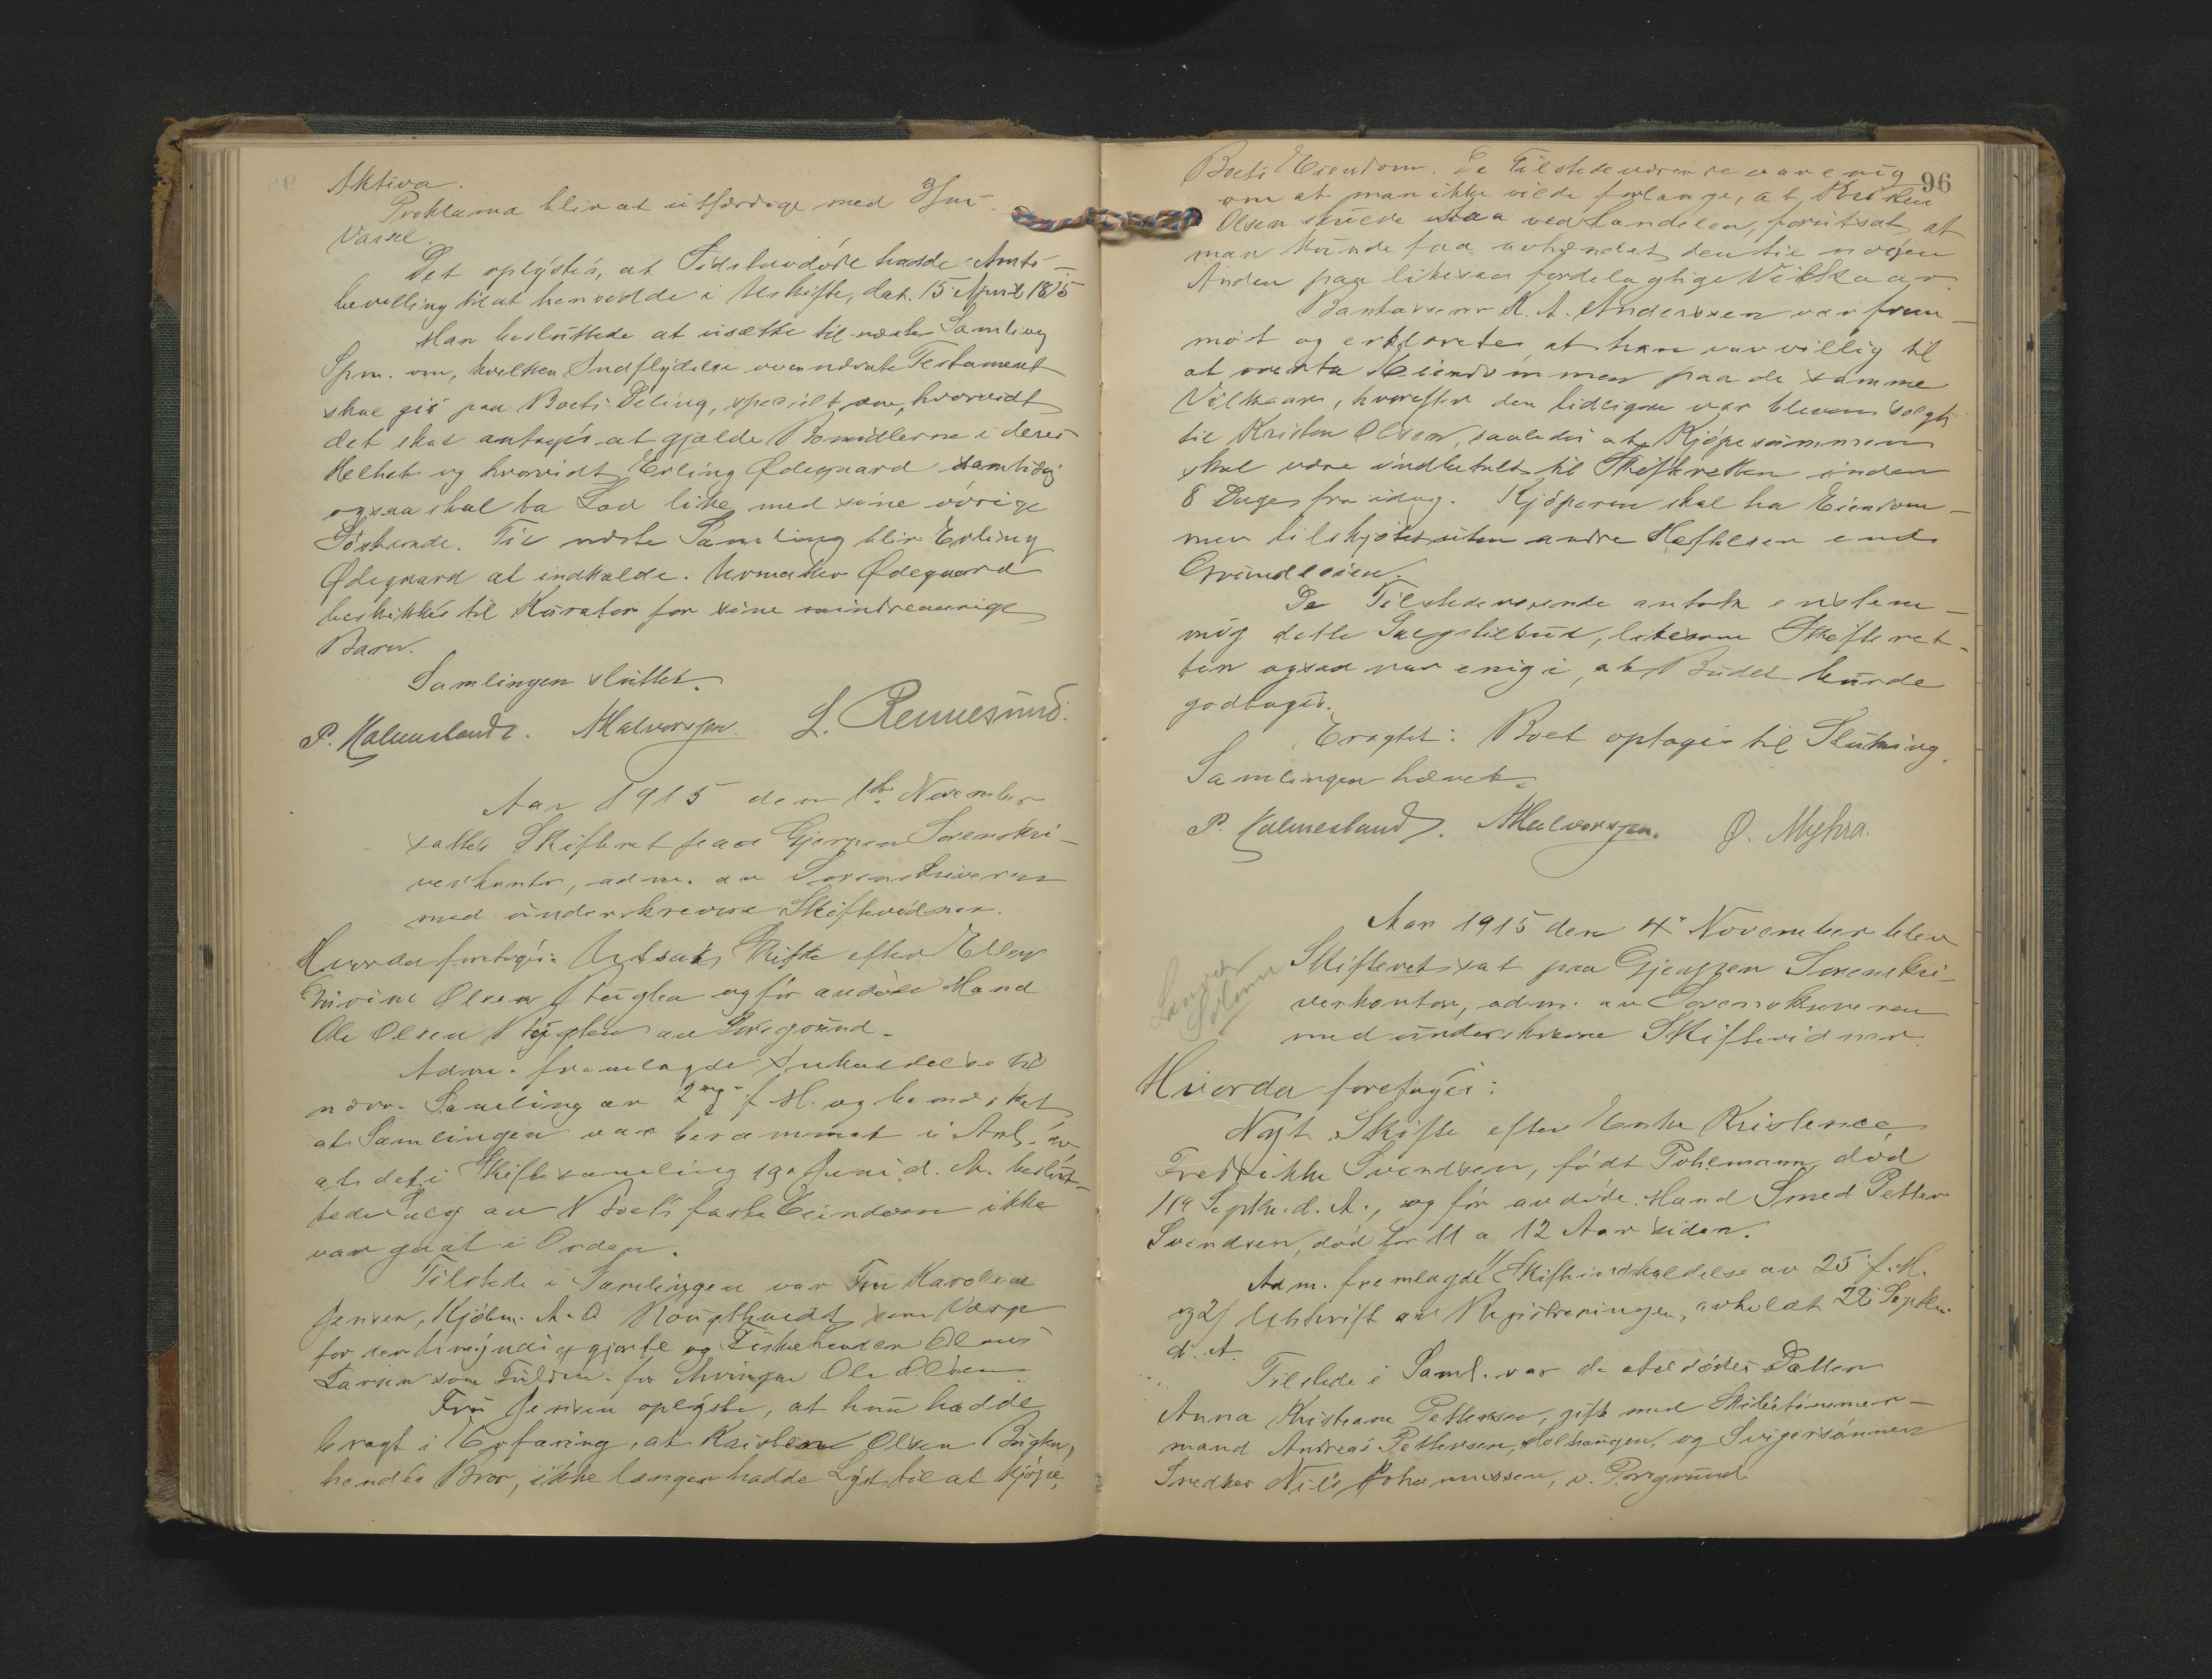 Aktiva.
Proklama blir at utfærdige med 3 Mm
Varsel.
Det oplystes, at Sidstavdøde hadde Amts-
bevilling til at hensidde i Uskifte, dat. 15 April 1875
Man besluttede at utsætte til næste Samling
Spm. om, hvilken Indflydelse ovennævnte Testament
skal gis paa Boets Deling, specielt om, hvorvidt
det skal antages at gjælde Bomidlerne i deres
Helhet og hvorvidt Erling Ødegaard samtidig
ogsaa skal ta Lod like med sine øvrige
Søskende. Til næste Samling blir Erling
Ødegaard at indkalde. Urmaker Ødegaard
beskikkes til Kurator for sine mindreaarige
Barn.
Samlingen sluttet.
P. Kalneslandt. Halvorsen. L. Rennesund.
Aar 1915 den 1ste November
sattes Skifteret paa Gjerpen Sorenskri-
verkontor, adm. av Sorenskriveren
med underskrevne Skiftevidner.
Hvorda foretoges: Utsat Skifte efter Ellen
Olsen og før avdøde Mand
Ole Olsen av Porsgrund.
Adm. fremlagde Inkaldelse til
nærv. Samling av 2 f. M. og bemærket
at Samlingen var berammet i Anl. av
at det i Skiftesamling 19 Juni d. A. beslut-
tede Salg av Boets faste Eiendom ikke
var gaat i Orden.
Tilstede i Samlingen var Fru Karoline
Jensen, Kjøbm. A. O. som Værge
for den umyndiggjorte og Fiskehandler Olaus
Larsen som Fuldm. for Arvingen Ole Olsen.
Fru Jensen oplyste, at hun hadde
bragt i Erfaring, at Kristen Olsen
hendes Bror, ikke længer hadde Lyst til at kjøpe
96
Boets Eiendom. De Tilstedeværende var enig
om at man ikke vilde forlange, at Kristen
Olsen skulde staa ved Handelen, forutsat at
man kunde faa avhændet den til nogen
Anden paa likesaa fordelagtige Vilkaar.
Bankkasserer K. A. Anderssen var frem-
møt og erklærte, at han var villig til
at overta Eiendommen paa de samme
Vilkaar, hvorefter den tidligere var bleven solgt
til Kristen Olsen, saaledes at Kjøpesummen
skal være indbetalt til Skifteretten inden
8 Dage fra idag. Kjøperen skal ha Eiendom-
men tilskjøtet uten andre Heftelser end
Grundleien.
De Tilstedeværende antok enstem-
mig dette Salgstilbud, likesom Skifteret-
ten ogsaa var enig i, at Budet burde
godtages.
Eragtet: Boet optages til Slutning.
Samlingen hævet.
P. Kalneslandt. Halvorsen. O. Myhra.
Aar 1915 den 4de November blev
Skifteret sat paa Gjerpen Sorenskri-
verkontor, adm. av Sorenskriveren
med underskrevne Skiftevidner.
Hvorda foretoges:
Nyt Skifte efter Enke Kristence
Fredrikke Svendsen, født Pohlmann, død
11te Septbr. d. A., og før avdøde Mand Smed Petter
Svendsen, død for 11 a 12 Aar siden.
Adm. fremlagde 1) Skifteindkaldelse av 25 f. M.
og 2) Utskrift av Registreringen, avholdt 28 Septbr.
d. A.
Tilstede i Saml. var de avdødes Datter
Anna Kristiane Pettersen, gift med Skibstømmer-
mand Andreas Pettersen, og Svigersønnen
Snedker Nils Johannessen, v. Porsgrund